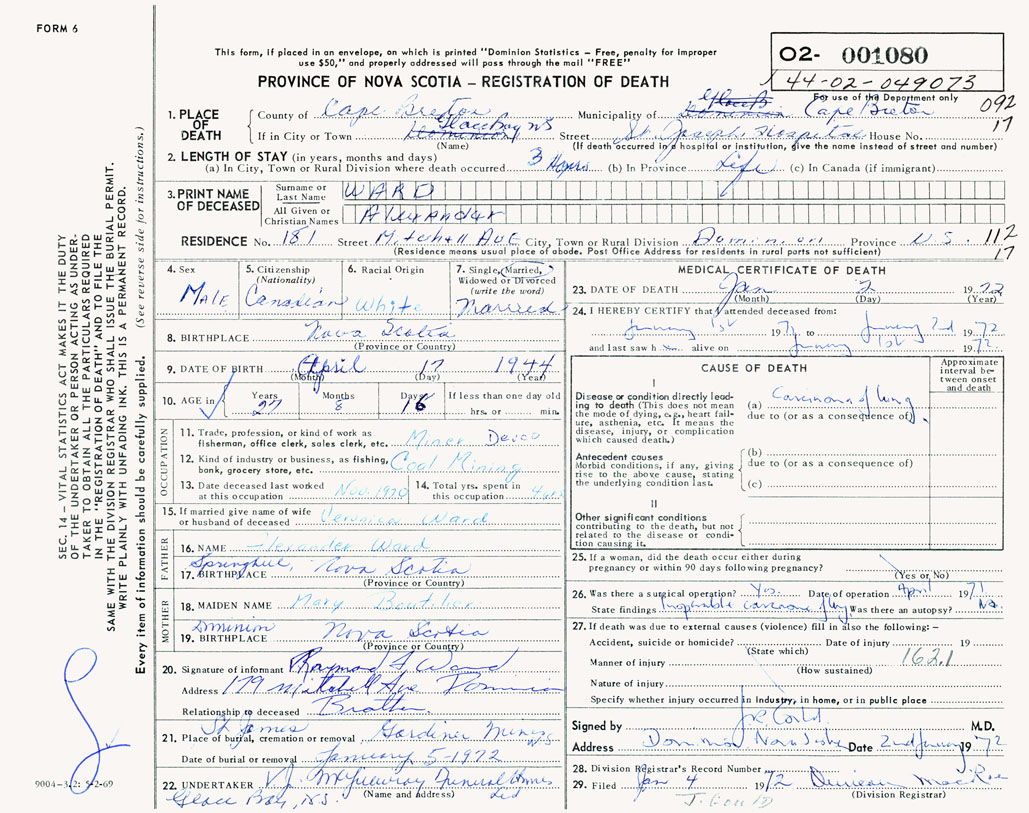 FORM 6
This form, if placed in an envelope, on which is printed "Dominion Statistics – Free, penalty for improper
use $50," and properly addressed will pass through the mail "FREE"
PROVINCE OF NOVA SCOTIA – REGISTRATION OF DEATH
02- 001080
44-02-049073
For use of the Department only
092
17
1. PLACE OF DEATH
County of Cape Breton Municipality of Dominion Glace B Cape Breton
If in City or Town Dominion Glace Bay NS Street St. Joseph's Hospital House No.
(Name) (If death occurred in a hospital or institution, give the name instead of street and number)
2. LENGTH OF STAY (in years, months and days)
(a) In City, Town or Rural Division where death occurred 3 (b) In Province Life (c) In Canada (if immigrant)
3. PRINT NAME OF DECEASED
Surname or Last Name WARD
All Given or Christian Names Alexander
RESIDENCE No. 181 Street Mitchell Ave City, Town or Rural Division Dominion Province N.S. 112
17
(Residence means usual place of abode. Post Office Address for residents in rural parts not sufficient)
4. Sex Male
5. Citizenship (Nationality) Canadian
6. Racial Origin White
7. Single, Married, Widowed or Divorced (write the word) Married
8. BIRTHPLACE Nova Scotia
(Province or Country)
9. DATE OF BIRTH April 17 1944
(Month) (Day) (Year)
10. AGE in Years 27 Months 8 Days 16 If less than one day old hrs. or min.
OCCUPATION
11. Trade, profession, or kind of work as fisherman, office clerk, sales clerk, etc. Miner Devco
12. Kind of industry or business, as fishing, bank, grocery store, etc. Coal Mining
13. Date deceased last worked at this occupation Nov. 1970
14. Total yrs. spent in this occupation 4
15. If married give name of wife or husband of deceased Veronica Ward
FATHER
16. NAME Alexander Ward
17. BIRTHPLACE Springhill, Nova Scotia
(Province or Country)
MOTHER
18. MAIDEN NAME Mary Boutilier
19. BIRTHPLACE Dominion Nova Scotia
(Province or Country)
20. Signature of informant Raymond J Ward
Address 179 Mitchell Ave Dominion
Relationship to deceased Brother
21. Place of burial, cremation or removal St James Gardiner Mines N.S.
Date of burial or removal January 5-1972
22. UNDERTAKER V.J. McGillivray Funeral Homes Ltd
(Name and address)
Glace Bay, N.S.
MEDICAL CERTIFICATE OF DEATH
23. DATE OF DEATH Jan 2 1972
(Month) (Day) (Year)
24. I HEREBY CERTIFY that I attended deceased from:
January 1st 197 to January 2nd 1972
and last saw h alive on January 1st 1972
CAUSE OF DEATH
Approximate interval between onset and death
I
Disease or condition directly leading to death (This does not mean the mode of dying, e.g., heart failure, asthenia, etc. It means the disease, injury, or complication which caused death.)
(a) Carcinoma of lung
due to (or as a consequence of)
Antecedent causes
Morbid conditions, if any, giving rise to the above cause, stating the underlying condition last.
(b)
due to (or as a consequence of)
(c)
II
Other significant conditions contributing to the death, but not related to the disease or condition causing it.
25. If a woman, did the death occur either during
pregnancy or within 90 days following pregnancy?
(Yes or No)
26. Was there a surgical operation? Yes. Date of operation April 1971
State findings Inoperable carcinoma of lung Was there an autopsy? No.
27. If death was due to external causes (violence) fill in also the following: –
Accident, suicide or homicide? Date of injury 19
(State which)
Manner of injury 162.1
(How sustained)
Nature of injury
Specify whether injury occurred in industry, in home, or in public place
Signed by M.D.
Address Dominion Nova Scotia Date 2nd January 1972
28. Division Registrar's Record Number
29. Filed Jan 4 1972 Duncan
(Division Registrar)
SEC. 14 – VITAL STATISTICS ACT MAKES IT THE DUTY
OF THE UNDERTAKER OR PERSON ACTING AS UNDER-
TAKER TO OBTAIN ALL THE PARTICULARS REQUIRED
IN THE "REGISTRATION OF DEATH" AND TO FILE THE
SAME WITH THE DIVISION REGISTRAR WHO SHALL ISSUE THE BURIAL PERMIT.
WRITE PLAINLY WITH UNFADING INK. THIS IS A PERMANENT RECORD.
Every item of information should be carefully supplied. (See reverse side for instructions.)